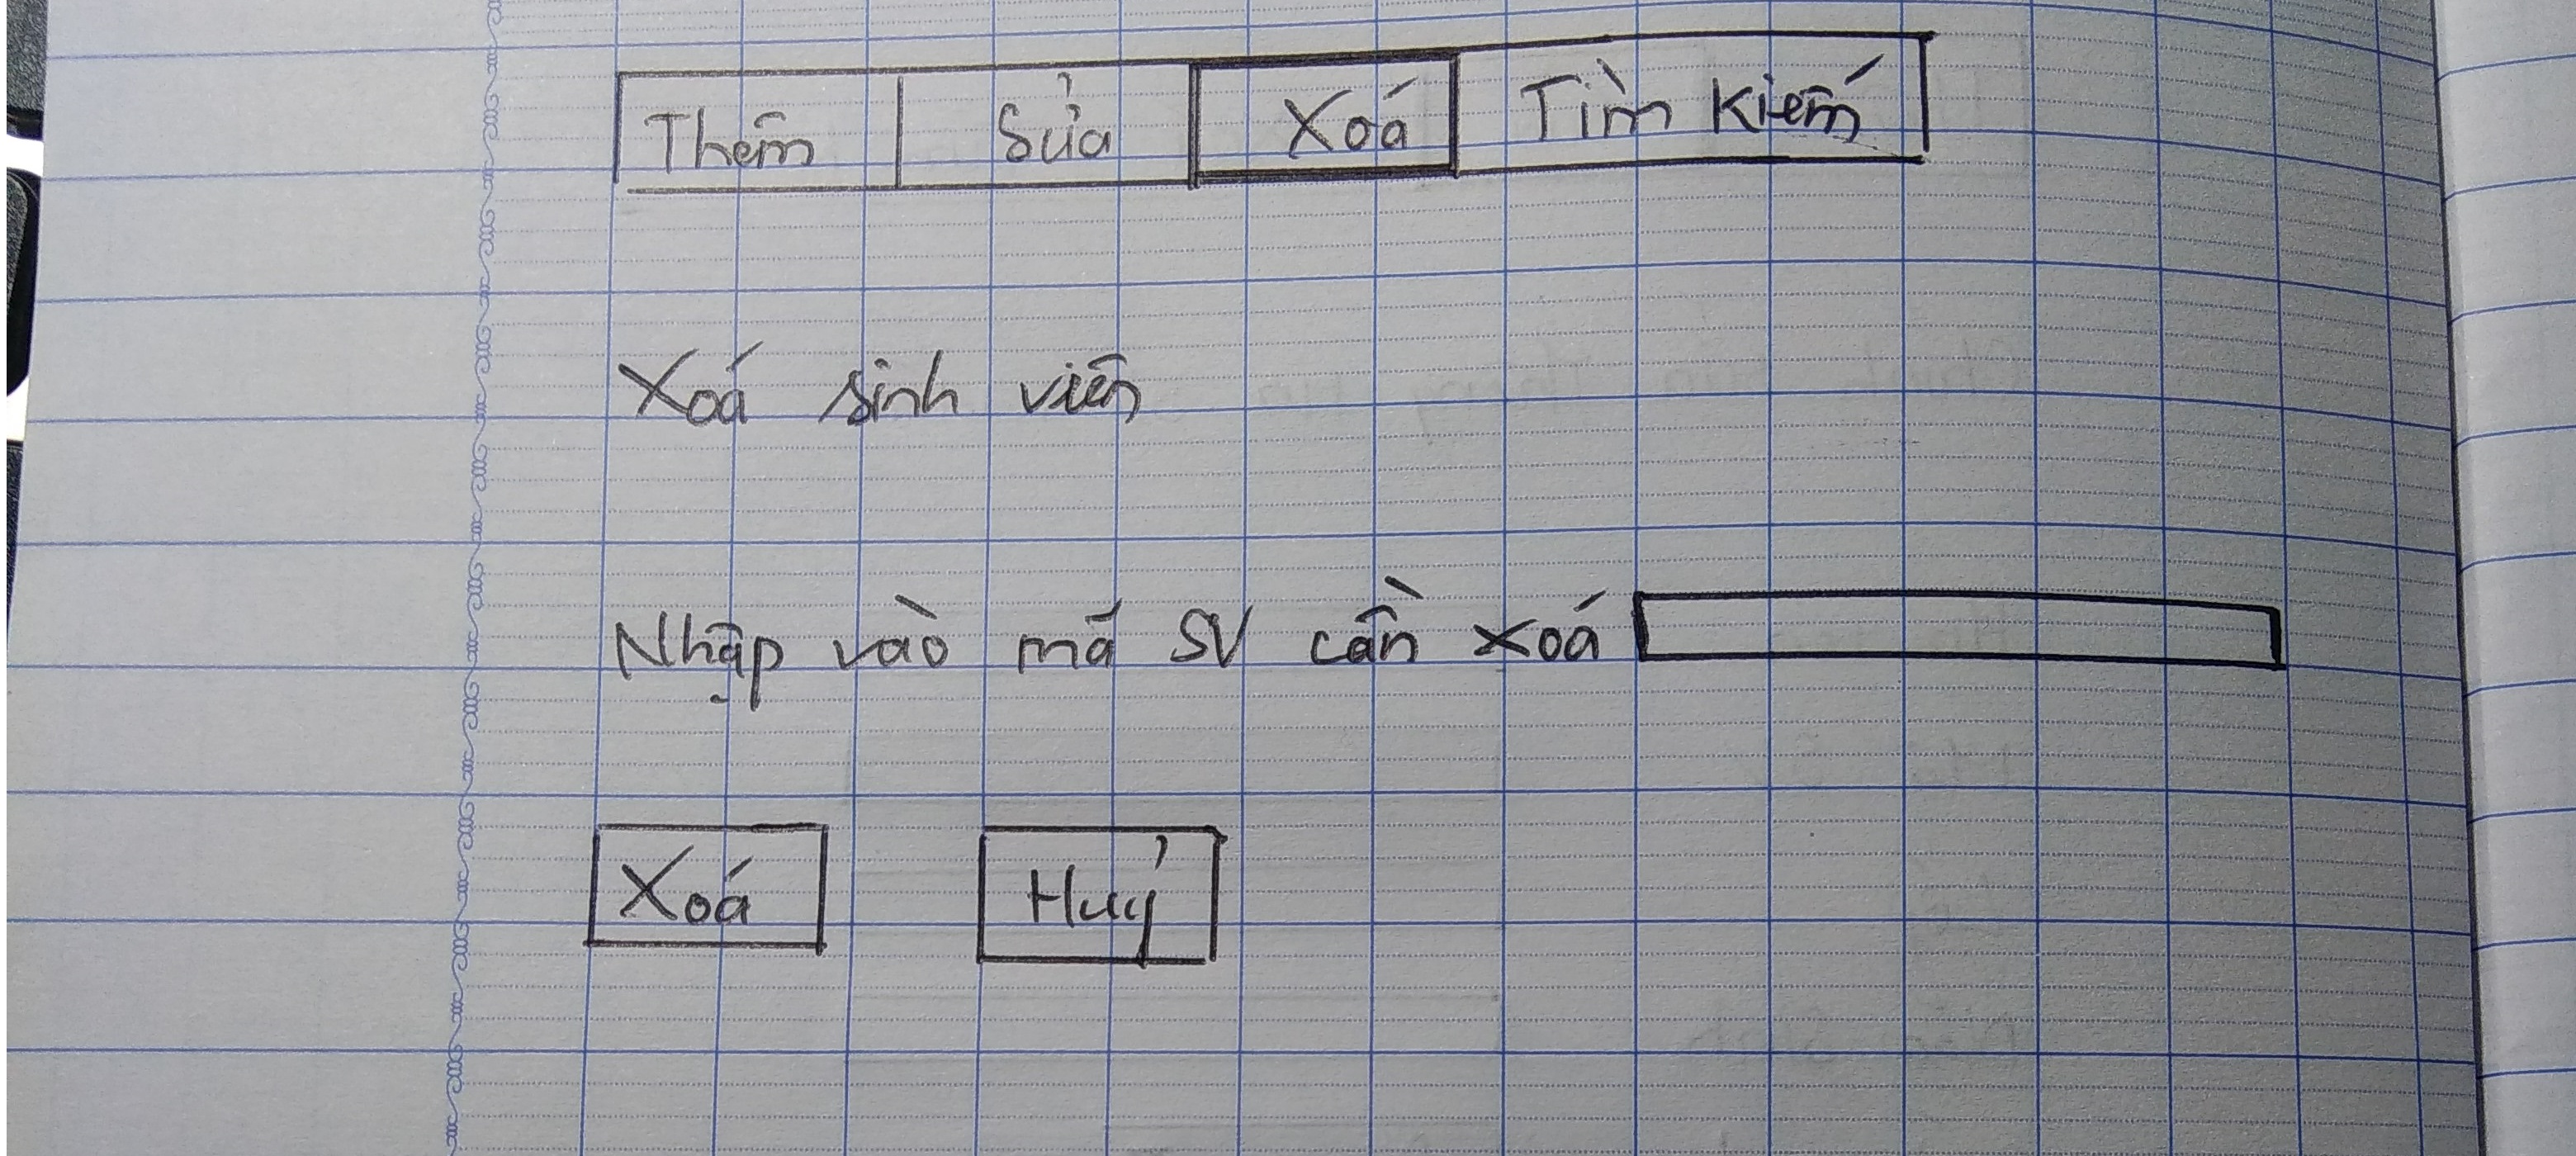 Thêm Sửa Xoá Tìm Kiếm
Xoá sinh viên
Nhập vào mã SV cần xoá
Xoá Huỷ